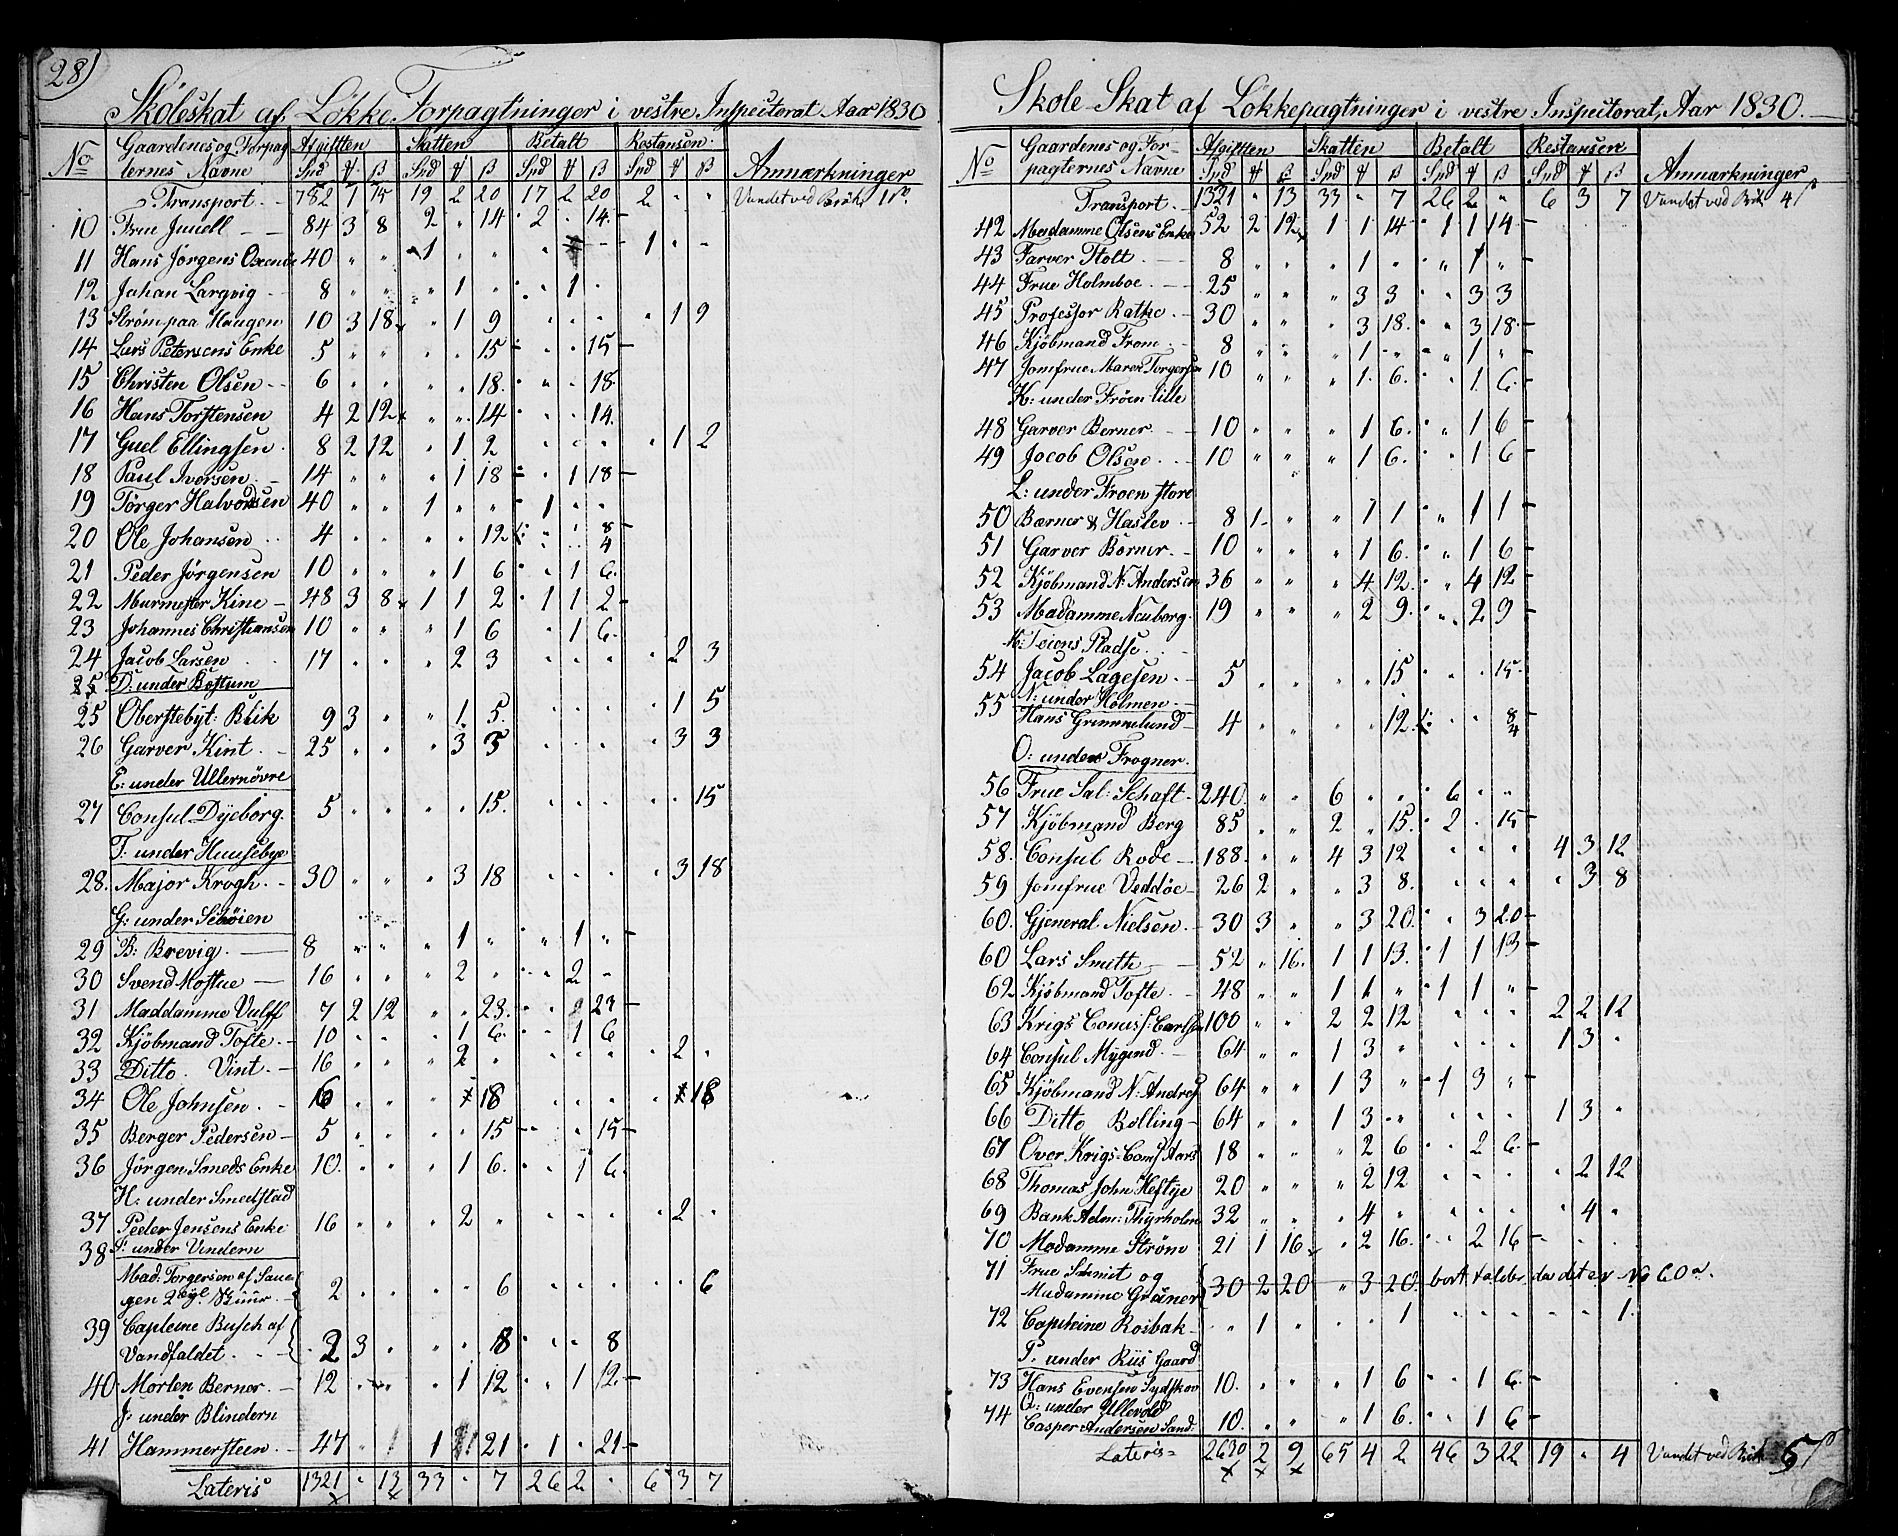 28)
Skoleskat af Løkke Forpagtninger i vestre Inspectorat Aar 1830
No Gaardenes og Forpag Afgiften Skatten Betalt Restansen: Anmærkninger
ternes Navne Spd ß Spd ß Spd ß Spd ß
Transport 782 7 15 19 2 20 17 2 20 2 " " Vundet ved Brøk 11
10 Frue Juuell 84 3 8 2 " 14 2 " 14
11 Hans Jørgens 40 " " 1 " " 1 " "
12 Johan Largvig 8 " " " 1 " " 1 "
13 Strøm paa Haugen 10 3 18 " 1 9 " " " " 1 9
14 Lars Petersens Enke 5 " " " " 15 " " 15
15 Christen Olsen 6 " " " " 18 " " 18
16 Hans Torstensen 4 2 12 " " 14 " " 14
17 Guel Ellingsen 8 2 12 " 1 2 " " " " 1 2
18 Paul Iversen 14 " " " 1 18 " 1 18
19 Tørger Halvorsen 40 " " 1 " " 1 " "
20 Ole Johansen 4 " " " " 12 " " 8/4
21 Peder Jørgensen 10 " " " 1 6 " 1 6
22 Murmester Kine 48 3 8 1 1 2 1 1 2
23 Johannes Christiansen 10 " " " 1 6 " 1 6
24 Jacob Larsen 17 " " " 2 3 " " " " 2 3
25 D: under Bestum
25 Oberstebyt: Blik 9 3 " " 1 5 " " " " 1 5
26 Garver Kint 25 " " " 3 3 " " " " 3 3
E: under Ullernøvre
27 Consul Dyeborg 5 " " " " 15 " " " " " 15
F: under Huusebye
28 Major Krogh 30 " " " 3 18 " " " " 3 18
G: under Schøien
29 B: Brevig 8 " " " 1 " " 1 "
30 Svend Mostue 16 " " " 2 " " 2 "
31 Maddamme Vulff 7 2 12 " " 23 " " 23
32 Kjøbmand Tofte 10 " " " 1 6 " 1 6
33 Ditto Vint 16 " " " 2 " " " " " 2 "
34 Ole Johnsen 6 " " " 18 " " " " 18
35 Berger Pedersen 5 " " " " 15 " " 15
36 Jørgen Smeds Enke 10 " " " 1 6 " 1 6
H: under Smedstad
37 Peder Jensens Enke 16 " " " 2 " " " " " 2 "
38 under Vindern
Mad: Torgersen af Sau
gen 2 2 " " " " 6 " " " " " 6
39 Capteine Busch af
Vandfaldet 2 3 " " " 8 " " 8
40 Morten Berner 12 " " " 1 12 " 1 12
J: under Blindern
41 Hammersteen 47 " 1 21 1 " 21
Lateris 1321 " 13 33 " 7 26 2 " 6 3 7
Skole Skat af Løkkepagtninger i vestre Inspectorat, Aar 1830.
No Gaardenes og For- Afgiften Skatten Betalt Restansen Anmærkninger
pagternes Navne Spd ß Spd ß Spd ß Spd ß
Transport 1321 " 13 33 " 7 26 2 " 6 3 7 Vundet ved Brøk 4
42 Madamme Olsens Enke 52 2 12 1 1 14 1 1 14
43 Farver Holt 8 " " " 1 " " 1 "
44 Frue Holmboe 25 " " " 3 3 " 3 3
45 Professor Rathe 30 " " " 3 18 " 3 18
46 Kjøbmand From 8 " " " 1 " " 1 "
47 Jomfrue Maren Torgersen 10 " " " 1 6 " 1 6
K: under Frøen lille
48 Garver Berner 10 " " " 1 6 " 1 6
49 Jocob Olsen 10 " " " 1 6 " 1 6
L: under Froen store
50 Bærner & Haslev 8 1 " " 1 1 " 1 1
51 Garver Børner 10 " " " 1 6 " 1 6
52 Kjøbmand N: Andersen 36 " " " 4 12 " 4 12
53 Madamme Neuborg 19 " " " 2 9 " 2 9
M: Teiens Pladse
54 Jacob Lagesen 5 " " " " 15 " " 15
N: under Holmen
55 Hans Grimmelund 4 " " " " 12 " " 8/4
O: under Frogner
56 Frue Sal: Schaft 240 " " 6 " " 6 " "
57 Kjøbmand Berg 85 " " 2 " 15 2 " 15
58 Consul Rode 188 " " 4 3 12 " " " 4 3 12
59 Jomfrue Veddøe 26 2 " " 3 8 " " " " 3 8
60 Gjeneral Nielsen 30 3 " " 3 20 " 3 20
60 Lars Smith 52 " 16 1 1 13 1 1 13
62 Kjøbmand Tofte 48 " " 1 1 " 1 1 "
63 Krigs Comiss: Carlsen 100 " " 2 2 12 " " " 2 2 12
64 Consul Mygind 64 " " 1 3 " " " " 1 3 "
65 Kjøbmand N: Andres 64 " " 1 3 " 1 3 "
66 Ditto Bølling 64 " " 1 3 " " " " 1 3 "
67 Over Krigs Coms Aars 18 " " " 2 6 " 2 6
68 Thomas John Heftye 20 " " " 2 12 " " " " 2 12
69 Bank Adm: Thyrholm 32 " " " 4 " " " " " 4 "
70 Madamme Strøm 21 1 16 " 2 16 " 2 16
71 Frue Schmit og
Madamme Grøner 30 2 20 " 3 20 bort falder da det er No 60
72 Capiteine Rosbak " 1 " " " 1 " " " " " 1
P. under Riis Gaard
73 Hans Evensen Sydskov 10 " " " 1 6 " 1 6
Q: under Ullevold
74 Casper Andersen Sand: 10 " " " 1 6 " 1 6
Lateris 2630 2 9 65 4 2 46 3 22 19 " 4 Vundet ved Brøk 5